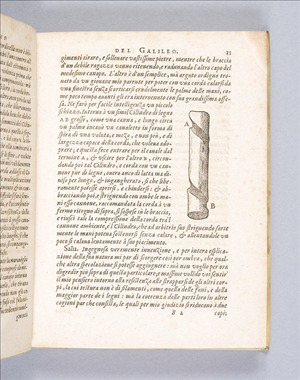 DEL GALILEO. 11
gimenti tirare, e sollevare vastissime pietre, mentre che le braccia
d'un debile ragazzo vanno ritenendo, e radunando l'altro capo del
medesimo canapo. L'altro è d'un semplice, mà arguto ordigno tro-
uato da un giouane mio parente per poter con una corda calarsi da
una finestra senza scorticarsi crudelmente le palme delle mani, co-
me poco tempo auanti gli era interuenuto con sua grandissima offe-
sa. Ne farò per facile intelligenza un piccolo
schizzo. Intorno à un simil Cilindro di legno
AB grosso, come una canna, e lungo circa
un palmo incauò un canaletto in forma di
spira di una voluta, e mezo, e non più, e di
larghezza capace della corda, che voleua ado-
prare; e questa fece entrare per il canale dal
termine A, & vscire per l'altro B, circon-
dando poi tal Cilindro, e corda con un can-
none pur di legno, ouero anco di latta ma di-
uiso per lungo, & ingangherato, sì che libe-
ramente potesse aprirsi, e chiudersi: & ab-
bracciando poi, e strignendo con ambe le ma-
ni esso cannone, raccomandata la corda à un
fermo ritegno di sopra, si sospese sù le braccia,
e riuscì tale la compressione della corda trà'l
cannone ambiente, e'l Cilindro, che ad arbitrio suo strignendo forte
mente le mani poteua sostenersi senza calare, & allentandole un
poco si calaua lentamente à suo piacimento.
Salu. Ingegnosa veramente inuenzione, e per intera esplica-
zione della sua natura mi par di scorgere così per ombra, che qual-
che altra specolazione si potesse aggiugnere: mà non voglio per ora
digredir più sopra di questo particolare, e massime volendo voi sentir'
il mio pensiero intorno alla resistenza allo strapparsi de gli altri cor-
pi, la cui testura non è di filamenti, come quella delle funi, e della
maggior parte de i legni: mà la coerenza delle parti loro in altre
cagioni par che consista, le quali per mio giudizio si riducono à due
B 2 capi;
A
B